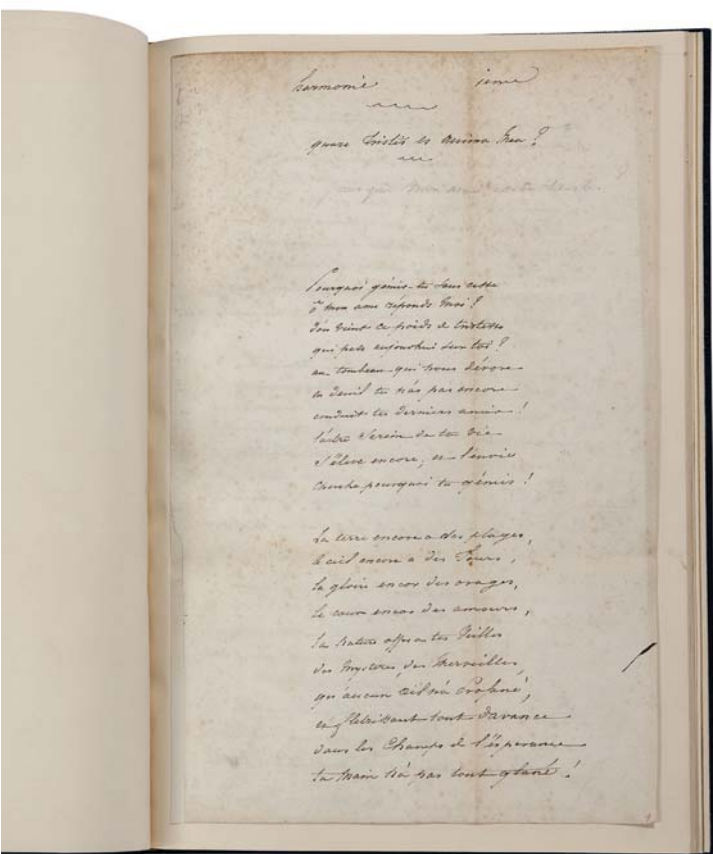 harmonie ieme
quare tristis es anima mea ?
mon ame
Pourquoi gémis-tu sans cesse
ô mon ame réponds moi ?
d'ou vient ce poids de tristesse
qui pese aujourdhui sur toi ?
au tombeau qui nous dévore
en deuil tu n'as pas encore
conduit tes derniers amis !
l'astre serein de ta vie
s'élève encore, et l'envie
cherche pourquoi tu gémis !
La terre encore a des plages,
le ciel encore a des Jours,
la gloire encor des orages,
le coeur encor des amours,
la Nature offre à tes Veilles
des Mysteres, des Merveilles,
qu'aucun oeil n'a Profané,
et flétrissant tout d'avance
dans les Champs de l'ésperance
ta Main n'a pas tout glané !